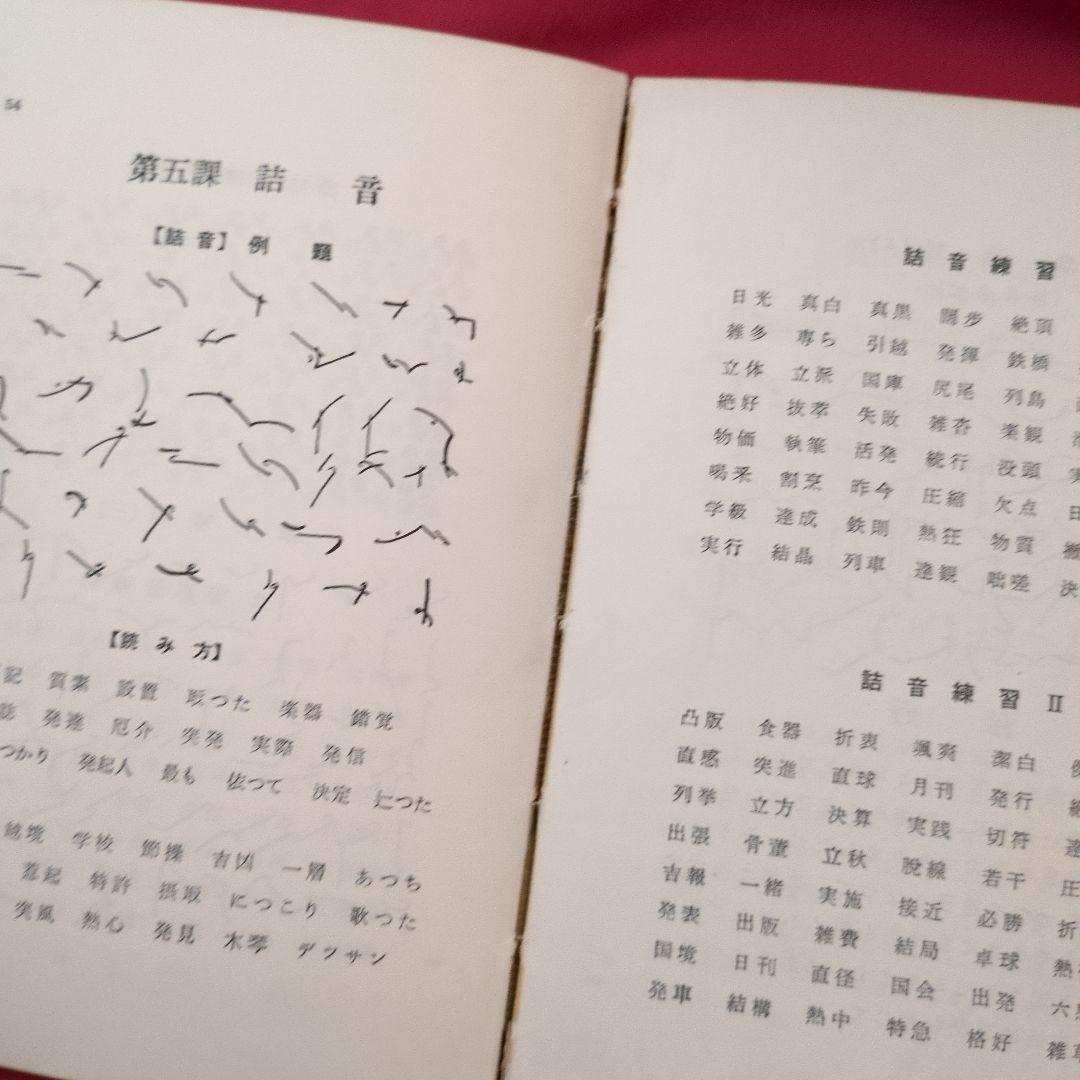 54
第五課 詰 音
【詰音】例 題
【読み方】
質素 設置 取つた 楽器 錯覚
発達 厄介 突発 実際 発信
つかり 発起人 最も 依つて 決定 につた
境 学校 節操 吉凶 一層 あつち
惹起 特許 摂取 につこり 歌つた
突風 熱心 発見 木琴 デツサン
詰音練習
日光 真白 真黒 闊歩 絶頂
雑多 専ら 引越 発揮 鉄橋
立体 立派 国庫 尻尾 列島
絶好 抜萃 失敗 雑沓 楽観
物価 執筆 活発 続行 没頭
喝采 割烹 昨今 圧縮 欠点
学級 達成 鉄則 熱狂 物質
実行 結晶 列車 達観 咄嗟 決
詰音練習 II
凸版 食器 折衷 颯爽 潔白
直感 突進 直球 月刊 発行
列挙 立方 決算 実践 切符
出張 骨董 立秋 脱線 若干 圧
吉報 一緒 実施 接近 必勝 折
発表 出版 雑費 結局 卓球 熱
国境 日刊 直径 国会 出発 六
発車 結構 熱中 特急 格好 雑